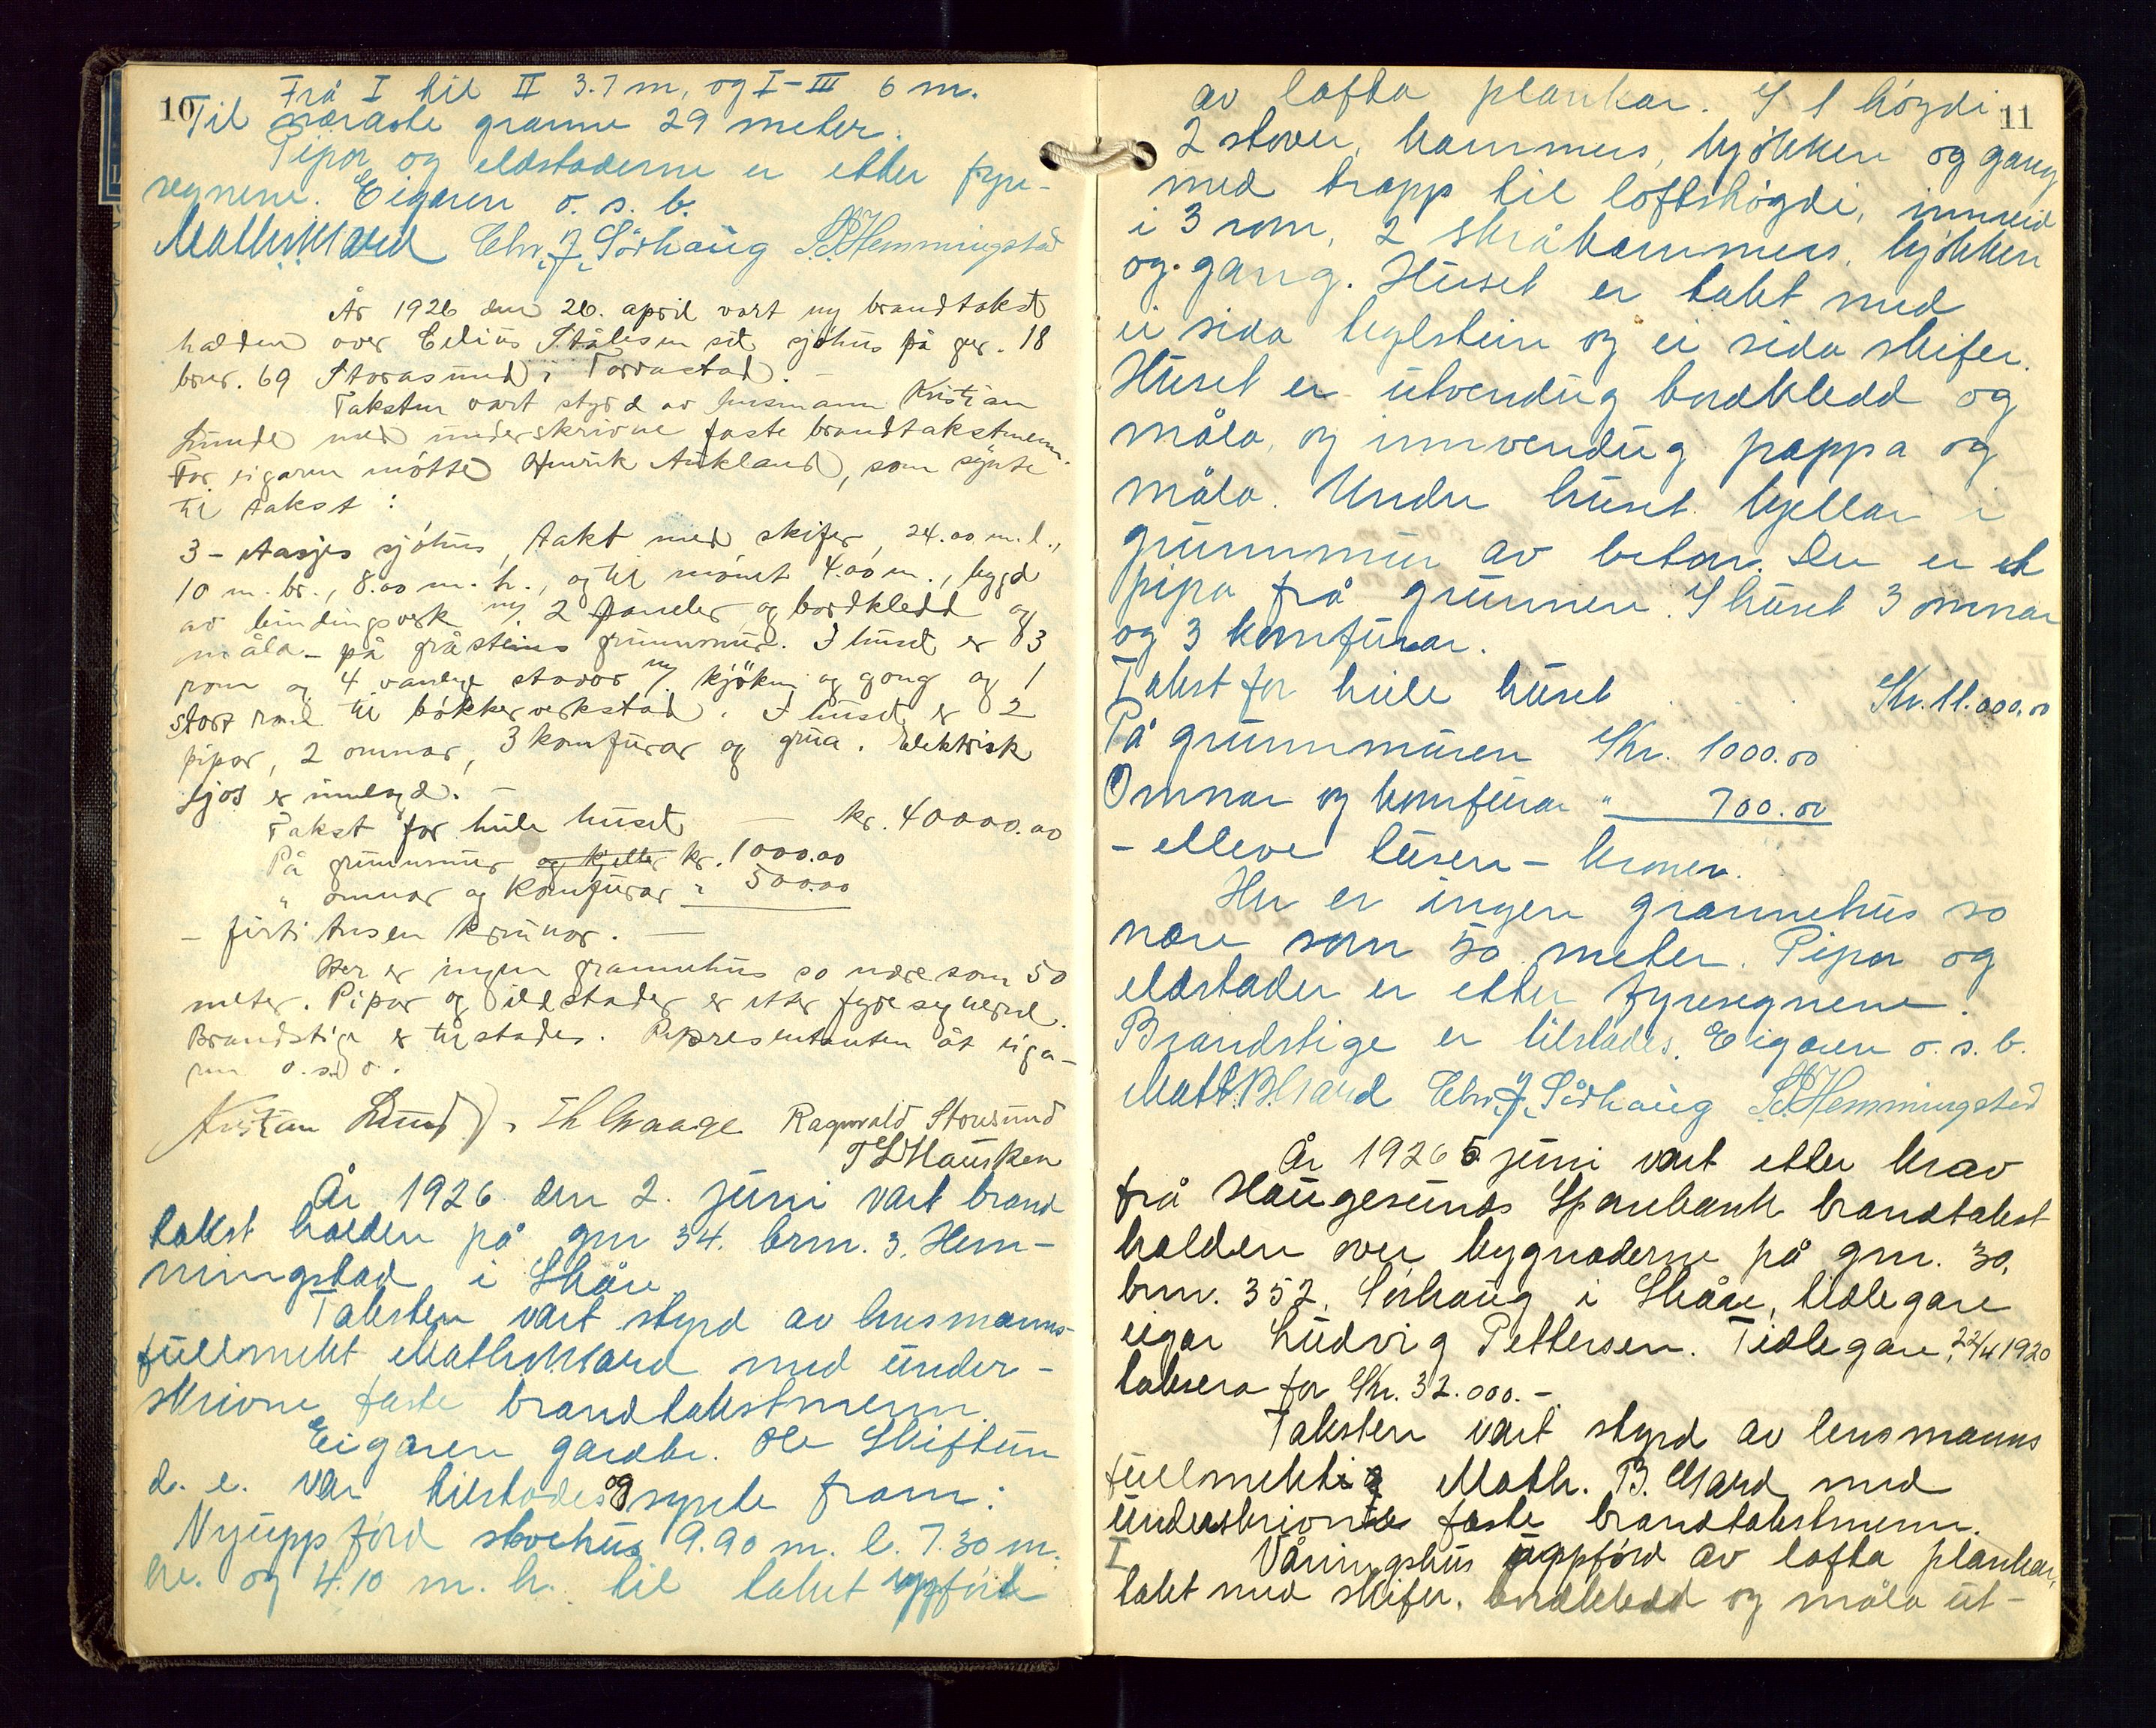 10
Frå I til II 3.7 m, og I-III 6 m.
Til næraste granne 29 meter.
Pipor og eldstaderne er etter fyre-
segnene. Eigaren o. s. b.
Math. B. Aard Chr. J. Sörhaug S. P. Hemmingstad
År 1926 den 26. april vart ny brandtakst
halden over Edius Stålesen sit sjöhus på gnr. 18
bnr. 69 Storasund i Torvastad. -
Taksten vart styrd av lensmann Kristian
Lunde med underskrivne faste brandtakstmenn.
For eigaren mötte Henrik Aukland, som synte
til takst:
3-etasjes sjöhus, takt med skifer, 24.00 m. l.,
10 m. br., 8.00 m. h., og til mönet 4.00 m., bygd
av bindingsverk m/ 2 paneler og bordkledd og
måla - på gråsteins grunnmur. I huset er 3
rom og 4 vanlege stovor m/ kjöken og gong og 1
stort rom til bökkerverkstad. I huset er 2
pipor, 2 omnar, 3 komfurar og grua. Elektrisk
ljos er innlagd. -
Takst for heile huset - kr. 40000.00
På grunnmur og kjeller kr. 1000.00
" omnar og komfurar " 500.00
- firti tusen krunor. -
Her er ingen grannehus so nære som 50
meter. Pipor og eldstader er etter fyresegnerne.
Brandstige er tilstades. Representanten åt eiga-
ren o. s. b.
Kristian Lunde, Th Waage Ragnvald Storesund
T L Hausken
År 1926 den 2. juni vart brand
takst halden på gnr 34. brn. 3. Hem-
mingstad i Skåre
Taksten vart styrd av lensmanns-
fullmekt Math. B. Aard med under-
skrivne faste brandtakstmenn.
Eigaren gardbr. Ole Skiftun
d. e. var tilstades og synte fram:
Nyuppförd stovehus 9.90 m. l. 7.30 m.
br. og 4.10 m. h. til taket uppförd
11
av lafta plankar. I 1 högdi
2 stover, kammers, kjökken og gang
med trapp til loftshögdi, innreid
i 3 rom, 2 skråkammers, kjökken
og gang. Huset er takt med
ei sida teglstein og ei sida skifer.
Huset er utvendug bordkledd og
måla, og innvendug pappa og
måla. Under huset kjellar i
grunnmur av beton. Der er ei
pipa frå grunnen. I huset 3 omnar
og 3 komfurar.
Takst for heile huset . . Kr. 11.000.00
På grunnmuren Kr. 1000.00
Omnar og komfurar " 700.00
- elleve tusen - kroner.
Her er ingen grannehus so
nære som 50 meter. Pipor og
eldstader er etter fyresegnene.
Brandstige er tilstades. Eigaren o. s. b.
Math. B. Aard Chr. J. Sörhaug S. P. Hemmingstad
År 1926 5 juni vart etter krav
frå Haugesunds Sparebank brandtakst
halden over bygnaderne på gnr. 30,
brn. 352, Sörhaug i Skåre, tidlegare
eigar Ludvig Pettersen. Tidlegare, 22/4 1920
taksera for Kr. 32.000.-
Taksten vart styrd av lensmanns
fullmektig Math. B. Aard med
underskrivne faste brandtakstmenn.
I Våningshus uppförd av lafta plankar,
takt med skifer, bordkledd og måla ut-